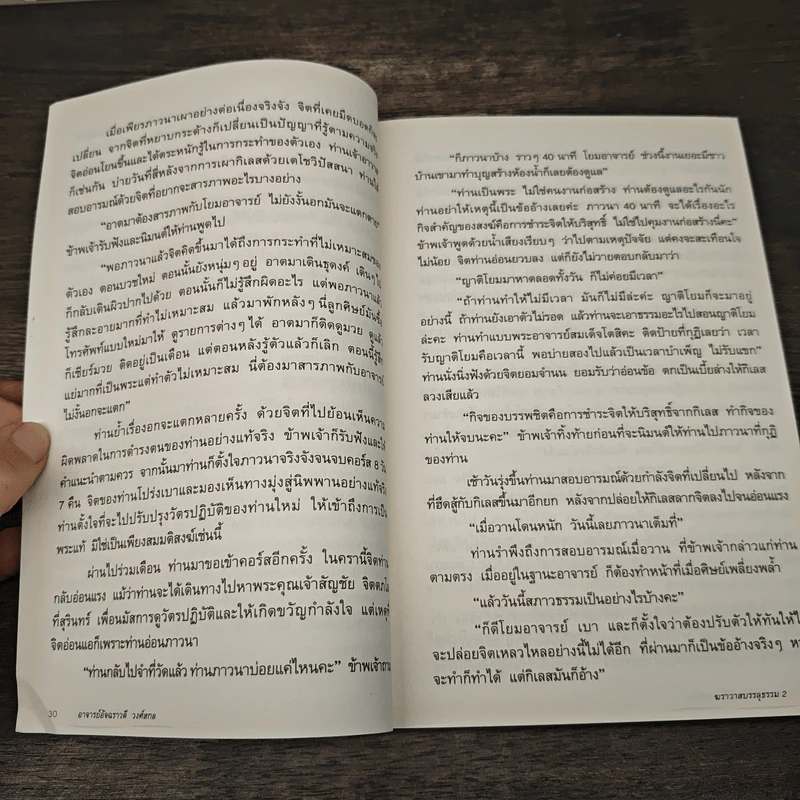 เมื่อเพียรภาวนาเผาอย่างต่อเนื่องจริงจัง จิตที่เคยมืดบอดก็
เปลี่ยน จากจิตที่หยาบกระด้างก็เปลี่ยนเป็นปัญญาที่รู้ตามความจริง
จิตอ่อนโยนขึ้นและได้ตระหนักรู้ในการกระทำของตัวเอง ท่านเจ้าอาวาส
ก็เช่นกัน บ่ายวันที่สี่หลังจากการเผากิเลสด้วยเตโชวิปัสสนา ท่านได้
สอบอารมณ์ด้วยจิตที่อยากจะสารภาพอะไรบางอย่าง
“อาตมาต้องสารภาพกับโยมอาจารย์ ไม่ยังงั้นอกมันจะแตกตาย”
ข้าพเจ้ารับฟังและนิมนต์ให้ท่านพูดไป
“พอภาวนาแล้วจิตคิดขึ้นมาได้ถึงการกระทำที่ไม่เหมาะสมของ
ตัวเอง ตอนบวชใหม่ ตอนนั้นยังหนุ่มๆ อยู่ อาตมาเดินธุดงค์ เดินๆ ไป
ก็กลับเดินผิวปากไปด้วย ตอนนั้นก็ไม่รู้สึกผิดอะไร แต่พอภาวนาแล้ว
รู้สึกละอายมากที่ทำไม่เหมาะสม แล้วมาพักหลังๆ นี่ลูกศิษย์มันซื้อ
โทรศัพท์แบบใหม่มาให้ ดูรายการต่างๆ ได้ อาตมาก็ติดดูมวย ดูแล้ว
ก็เชียร์มวย ติดอยู่เป็นเดือน แต่ตอนหลังรู้ตัวแล้วก็เลิก ตอนนี้รู้สึก
แย่มากที่เป็นพระแต่ทำตัวไม่เหมาะสม นี่ต้องมาสารภาพกับอาจารย์
ไม่งั้นอกจะแตก”
ท่านย้ำเรื่องอกจะแตกหลายครั้ง ด้วยจิตที่ไปย้อนเห็นความ
ผิดพลาดในการดำรงตนของท่านอย่างแท้จริง ข้าพเจ้าก็รับฟังและให้
คำแนะนำตามควร จากนั้นมาท่านก็ตั้งใจภาวนาจริงจังจนจบคอร์ส 8 วัน
7 คืน จิตของท่านโปร่งเบาและมองเห็นทางมุ่งสู่นิพพานอย่างแท้จริง
ท่านตั้งใจที่จะไปปรับปรุงวัตรปฏิบัติของท่านใหม่ ให้เข้าถึงการเป็น
พระแท้ มิใช่เป็นเพียงสมมติสงฆ์เช่นนี้
ผ่านไปร่วมเดือน ท่านมาขอเข้าคอร์สอีกครั้ง ในครานี้จิตท่าน
กลับอ่อนแรง แม้ว่าท่านจะได้เดินทางไปหาพระคุณเจ้าสัญชัย จิตตภโล
ที่สุรินทร์ เพื่อนมัสการดูวัตรปฏิบัติและให้เกิดขวัญกำลังใจ แต่เหตุที่
จิตอ่อนแอก็เพราะท่านอ่อนภาวนา
“ท่านกลับไปจำที่วัดแล้ว ท่านภาวนาบ่อยแค่ไหนคะ” ข้าพเจ้าถาม
30 อาจารย์อัจฉราวดี วงศ์สกล
“ก็ภาวนาบ้าง ราวๆ 40 นาที โยมอาจารย์ ช่วงนี้งานเยอะมีชาว
บ้านเขามาทำบุญสร้างห้องน้ำก็เลยต้องดูแล”
“ท่านเป็นพระ ไม่ใช่คนงานก่อสร้าง ท่านต้องดูแลอะไรกันนัก
ท่านอย่าให้เหตุนี้เป็นข้ออ้างเลยค่ะ ภาวนา 40 นาที จะได้เรื่องอะไร
กิจสำคัญของสงฆ์คือการชำระจิตให้บริสุทธิ์ ไม่ใช่ไปคุมงานก่อสร้างนี่คะ”
ข้าพเจ้าพูดด้วยน้ำเสียงเรียบๆ ว่าไปตามเหตุปัจจัย แต่คงจะสะเทือนใจ
ไม่น้อย จิตท่านอ่อนยวบลง แต่ก็ยังไม่วายตอบกลับมาว่า
“ญาติโยมมาหาตลอดทั้งวัน ก็ไม่ค่อยมีเวลา”
“ถ้าท่านทำให้ไม่มีเวลา มันก็ไม่มีล่ะค่ะ ญาติโยมก็จะมาอยู่
อย่างนี้ ถ้าท่านยังเอาตัวไม่รอด แล้วท่านจะเอาธรรมอะไรไปสอนญาติโยม
ล่ะคะ ท่านทำแบบพระอาจารย์สมเด็จโตสิคะ ติดป้ายที่กุฏิเลยว่า เวลา
รับญาติโยมคือเวลานี้ พอบ่ายสองไปแล้วเป็นเวลาบำเพ็ญ ไม่รับแขก”
ท่านนั่งนิ่งฟังด้วยจิตยอมจำนน ยอมรับว่าอ่อนข้อ ตกเป็นเบี้ยล่างให้กิเลส
ลวงเสียแล้ว
“กิจของบรรพชิตคือการชำระจิตให้บริสุทธิ์จากกิเลส ทำกิจของ
ท่านให้จบนะคะ” ข้าพเจ้าทิ้งท้ายก่อนที่จะนิมนต์ให้ท่านไปภาวนาที่กุฏิ
ของท่าน
เช้าวันรุ่งขึ้นท่านมาสอบอารมณ์ด้วยกำลังจิตที่เปลี่ยนไป หลังจาก
ที่ฮึดสู้กับกิเลสขึ้นมาอีกยก หลังจากปล่อยให้กิเลสลากจิตลงไปจนอ่อนแรง
“เมื่อวานโดนหนัก วันนี้เลยภาวนาเต็มที่”
ท่านรำพึงถึงการสอบอารมณ์เมื่อวาน ที่ข้าพเจ้ากล่าวแก่ท่าน
ตามตรง เมื่ออยู่ในฐานะอาจารย์ ก็ต้องทำหน้าที่เมื่อศิษย์เพลี่ยงพล้ำ
“แล้ววันนี้สภาวธรรมเป็นอย่างไรบ้างคะ”
“ก็ดีโยมอาจารย์ เบา และก็ตั้งใจว่าต้องปรับตัวให้ทันให้ได้
จะปล่อยจิตเหลวไหลอย่างนี้ไม่ได้อีก ที่ผ่านมาก็เป็นข้ออ้างจริงๆ
จะทำก็ทำได้ แต่กิเลสมันก็อ้าง”
ฆราวาสบรรลุธรรม 2